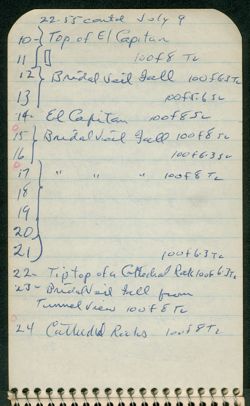 22-53 contd July 9
10- Top of El Capitan
11 100 f8 TL
12 Bridal Veil Fall 100 f6.3 TL
13 100 f5.6 SL
14- El Capitan 100 f8 SL
15 Bridal Veil Fall 100 f8 SL
16 100 f6.3 SL
17 " " " 100 f8 TL
18
19
20
21 100 f6.3 TL
22- Tip top of a Cathedral Rock 100 f6.3 TL
23- Bridal Veil Fall from
Tunnel View 100 f8 TL
24 Cathedral Rocks 100 f8 TL